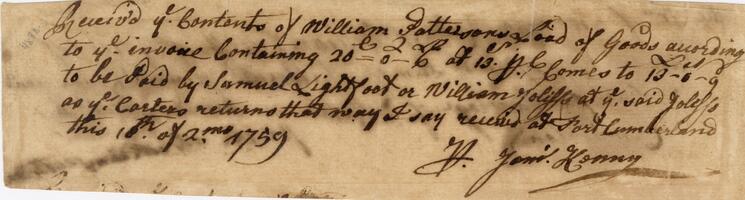 Receiv'd ye. Contents of William Pattersons Load of Goods according
to ye. invoice Containing 20 = 0 - 6 at 13s. p C Comes to 13 - 0 - 9
to be Paid by Samuel Lightfoot or William at ye. said
as ye. Carters returns that way I say receivd at Fort Cumberland
this 16th. of 2mo. 1759
P. Jams. Kenny